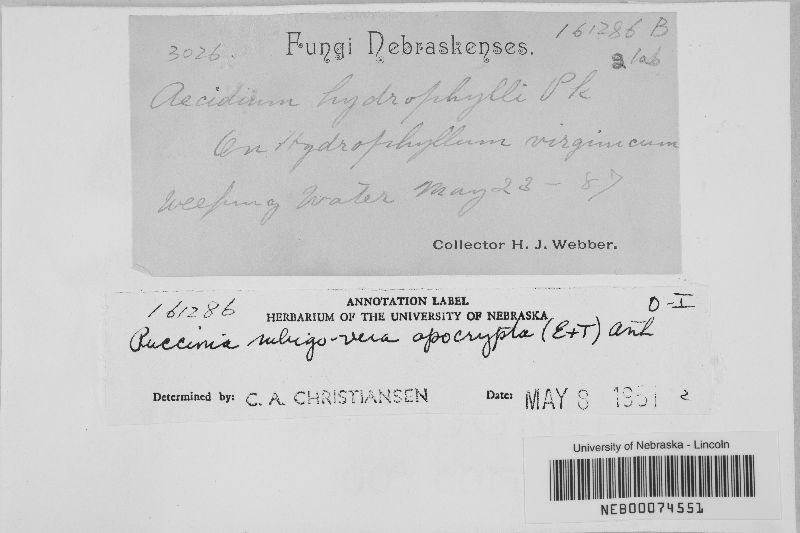 161286 B
3026. Fungi Nebraskenses.
2 lab
Aecidium hydrophylli Pk
On Hydrophyllum virginicum
Weeping Water May 23 - 87
Collector H. J. Webber.
161286 ANNOTATION LABEL O-I
HERBARIUM OF THE UNIVERSITY OF NEBRASKA
Puccinia rubigo-vera apocrypta (E+T) Arth
Determined by: C. A. CHRISTIANSEN Date: MAY 8 1951 2
University of Nebraska - Lincoln
NEB00074551